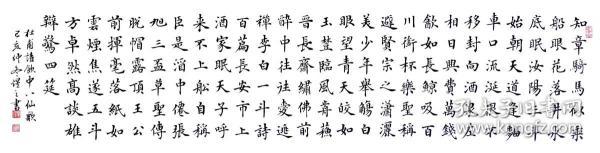 知章騎馬似乘
船眼花落井水
底眠汝陽三斗
始朝天道逢麴
車口流涎恨不
移封向酒泉左
相日興費萬錢
飲如長鯨吸百
川銜杯樂聖稱
避賢宗之瀟灑
美少年舉觴白
眼望青天皎如
玉樹臨風前蘇
晉長齋繡佛前
醉中往往愛逃
禪李白一斗詩
百篇長安市上
酒家眠天子呼
來不上船自稱
臣是酒中仙張
旭三杯草聖傳
脫帽露頂王公
前揮毫落紙如
雲煙焦遂五斗
方卓然高談雄
辯驚四筵
杜甫詩飲中八仙歌
己亥仲冬